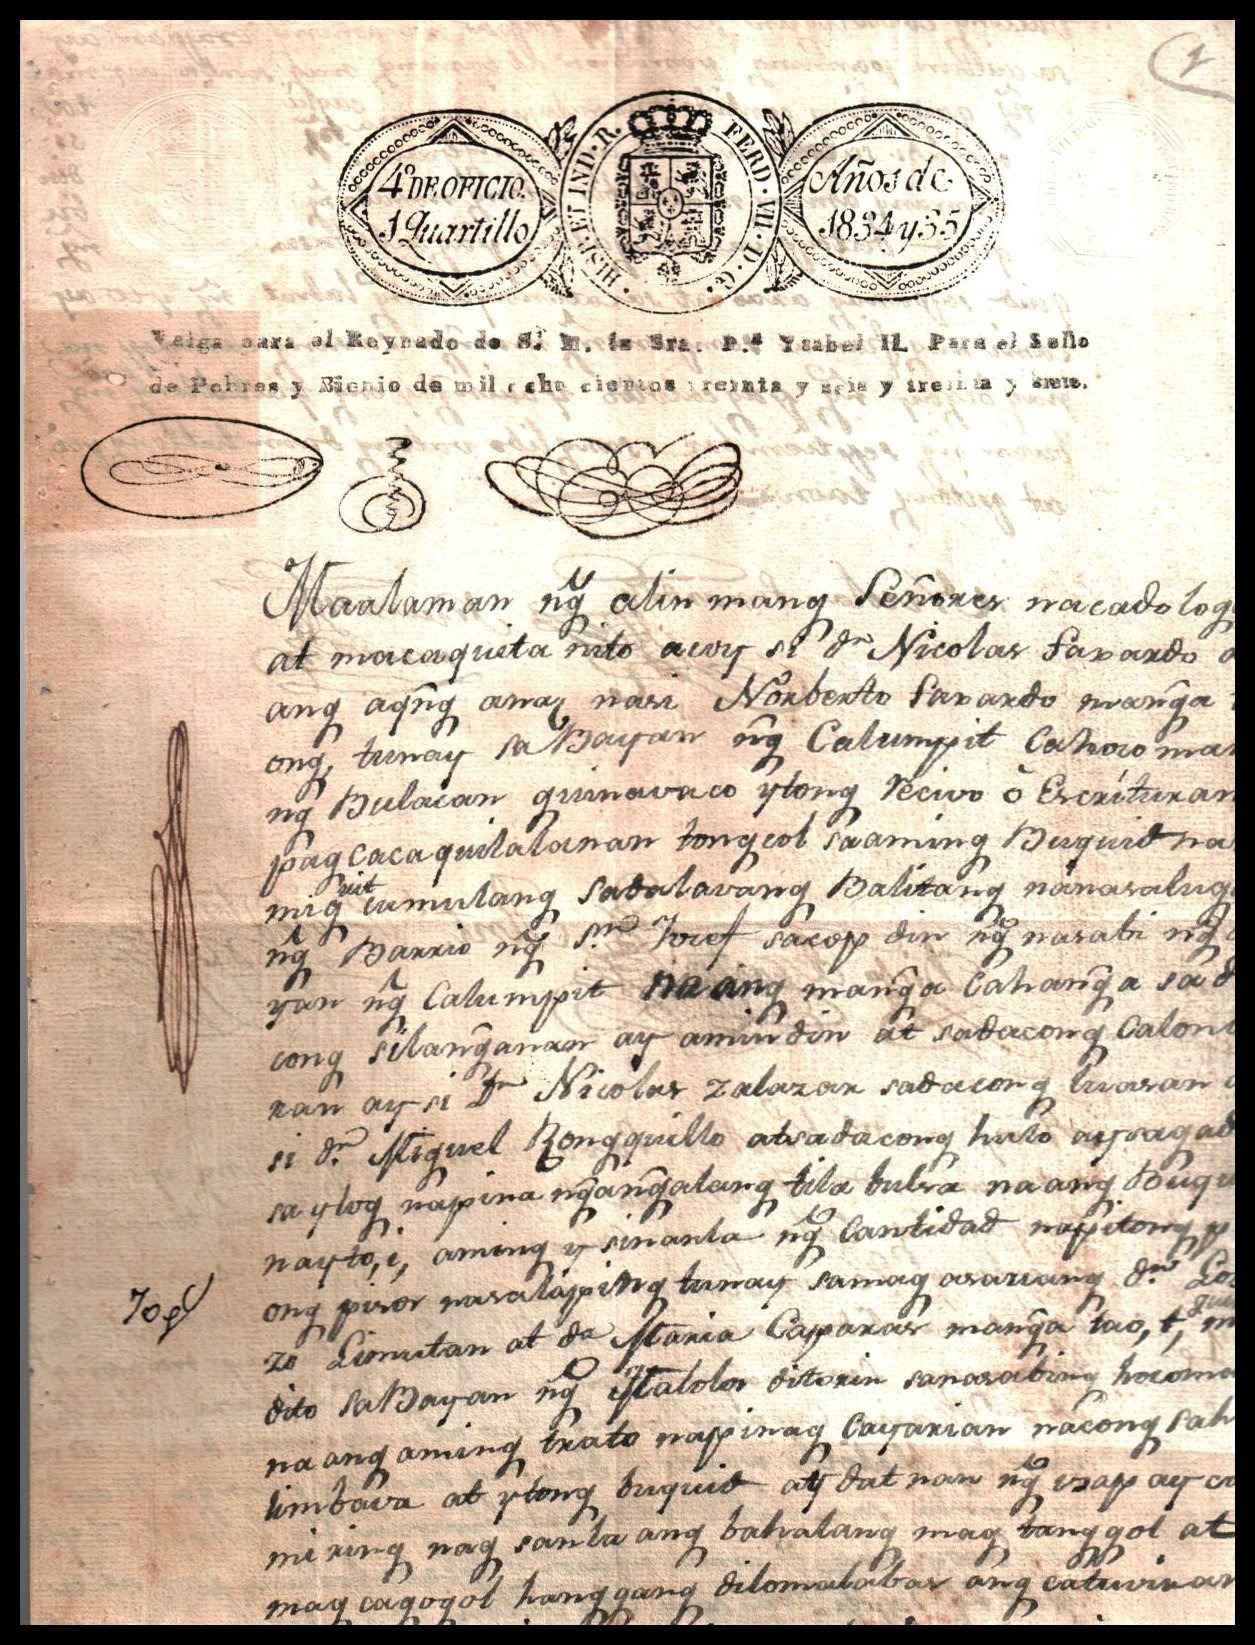 1
4º DE OFICIO.
1 Quartillo
HISP. ET IND. R. FERD. VII. D. G.
Años de
1834 y 35
Valga para el Reynado de S. M. la Sra. D.ª Ysabel II. Para el Sello
de Pobres y Bienio de mil ocho cientos treinta y seis y treinta y siete.
Maalaman ñg alin mang Señores nacadolog
at macaquita nito acoy si dn Nicolas Faxardo
ang aqñg anac nasi Norberto Faxardo mañga
ong, tunay sa Bayan ñg Calumpit Cahoco man
ng Bulacan guinavaco ytong Recivo ó Escrituran
pagcacaquilalanan tongcol sa aming Buquid na
mig uit cumulang sadalavang Balitang nanasalug
ñg Barrio ñg Sn Josef sacop din ñg nasabi ñg
yan ñg Calumpit na ang mañga Cahañga sa d
cong silañganan ay amin din at sadacong Calont
nan ay si Dn Nicolas Zalazar sadacong luasan
si dn Miguel Rongquillo at sadacong hulo ay sagad
sa ylog napina ñgañgalang tila bulsa na ang Buqu
nayto, i, aming y sinanla ñg Cantidad napitong p
ong pisos nasalapping tunay samag asavang dn Lor
zo Limutan at da Maria Caparas mañga tao, t,
dito sa Bayan ñg Malolos ditorin sanasabing hocoma
na ang aming trato napinag Cayarian nacong sah
limbava at ytong buquid ay dat nan ñg usap ay ca
mi ring nag sanla ang bahalang mag tanggol at
mag cagogol hanggang dilomalabas ang catuviran
70 ps